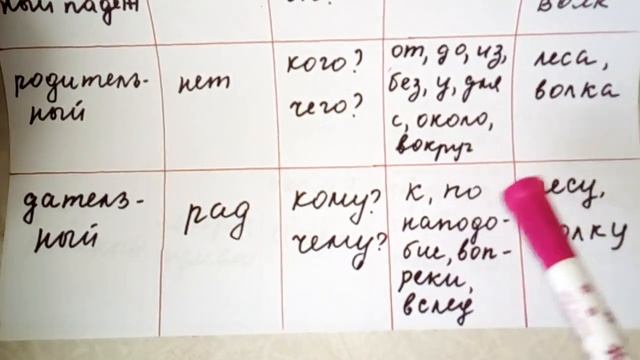 ный падеж
волк
родитель-
ный
нет
кого?
чего?
от, до, из,
без, у, для
с, около,
вокруг
леса,
волка
датель-
ный
рад
кому?
чему?
к, по
наподо-
бие, воп-
реки,
вслед
есу,
олку